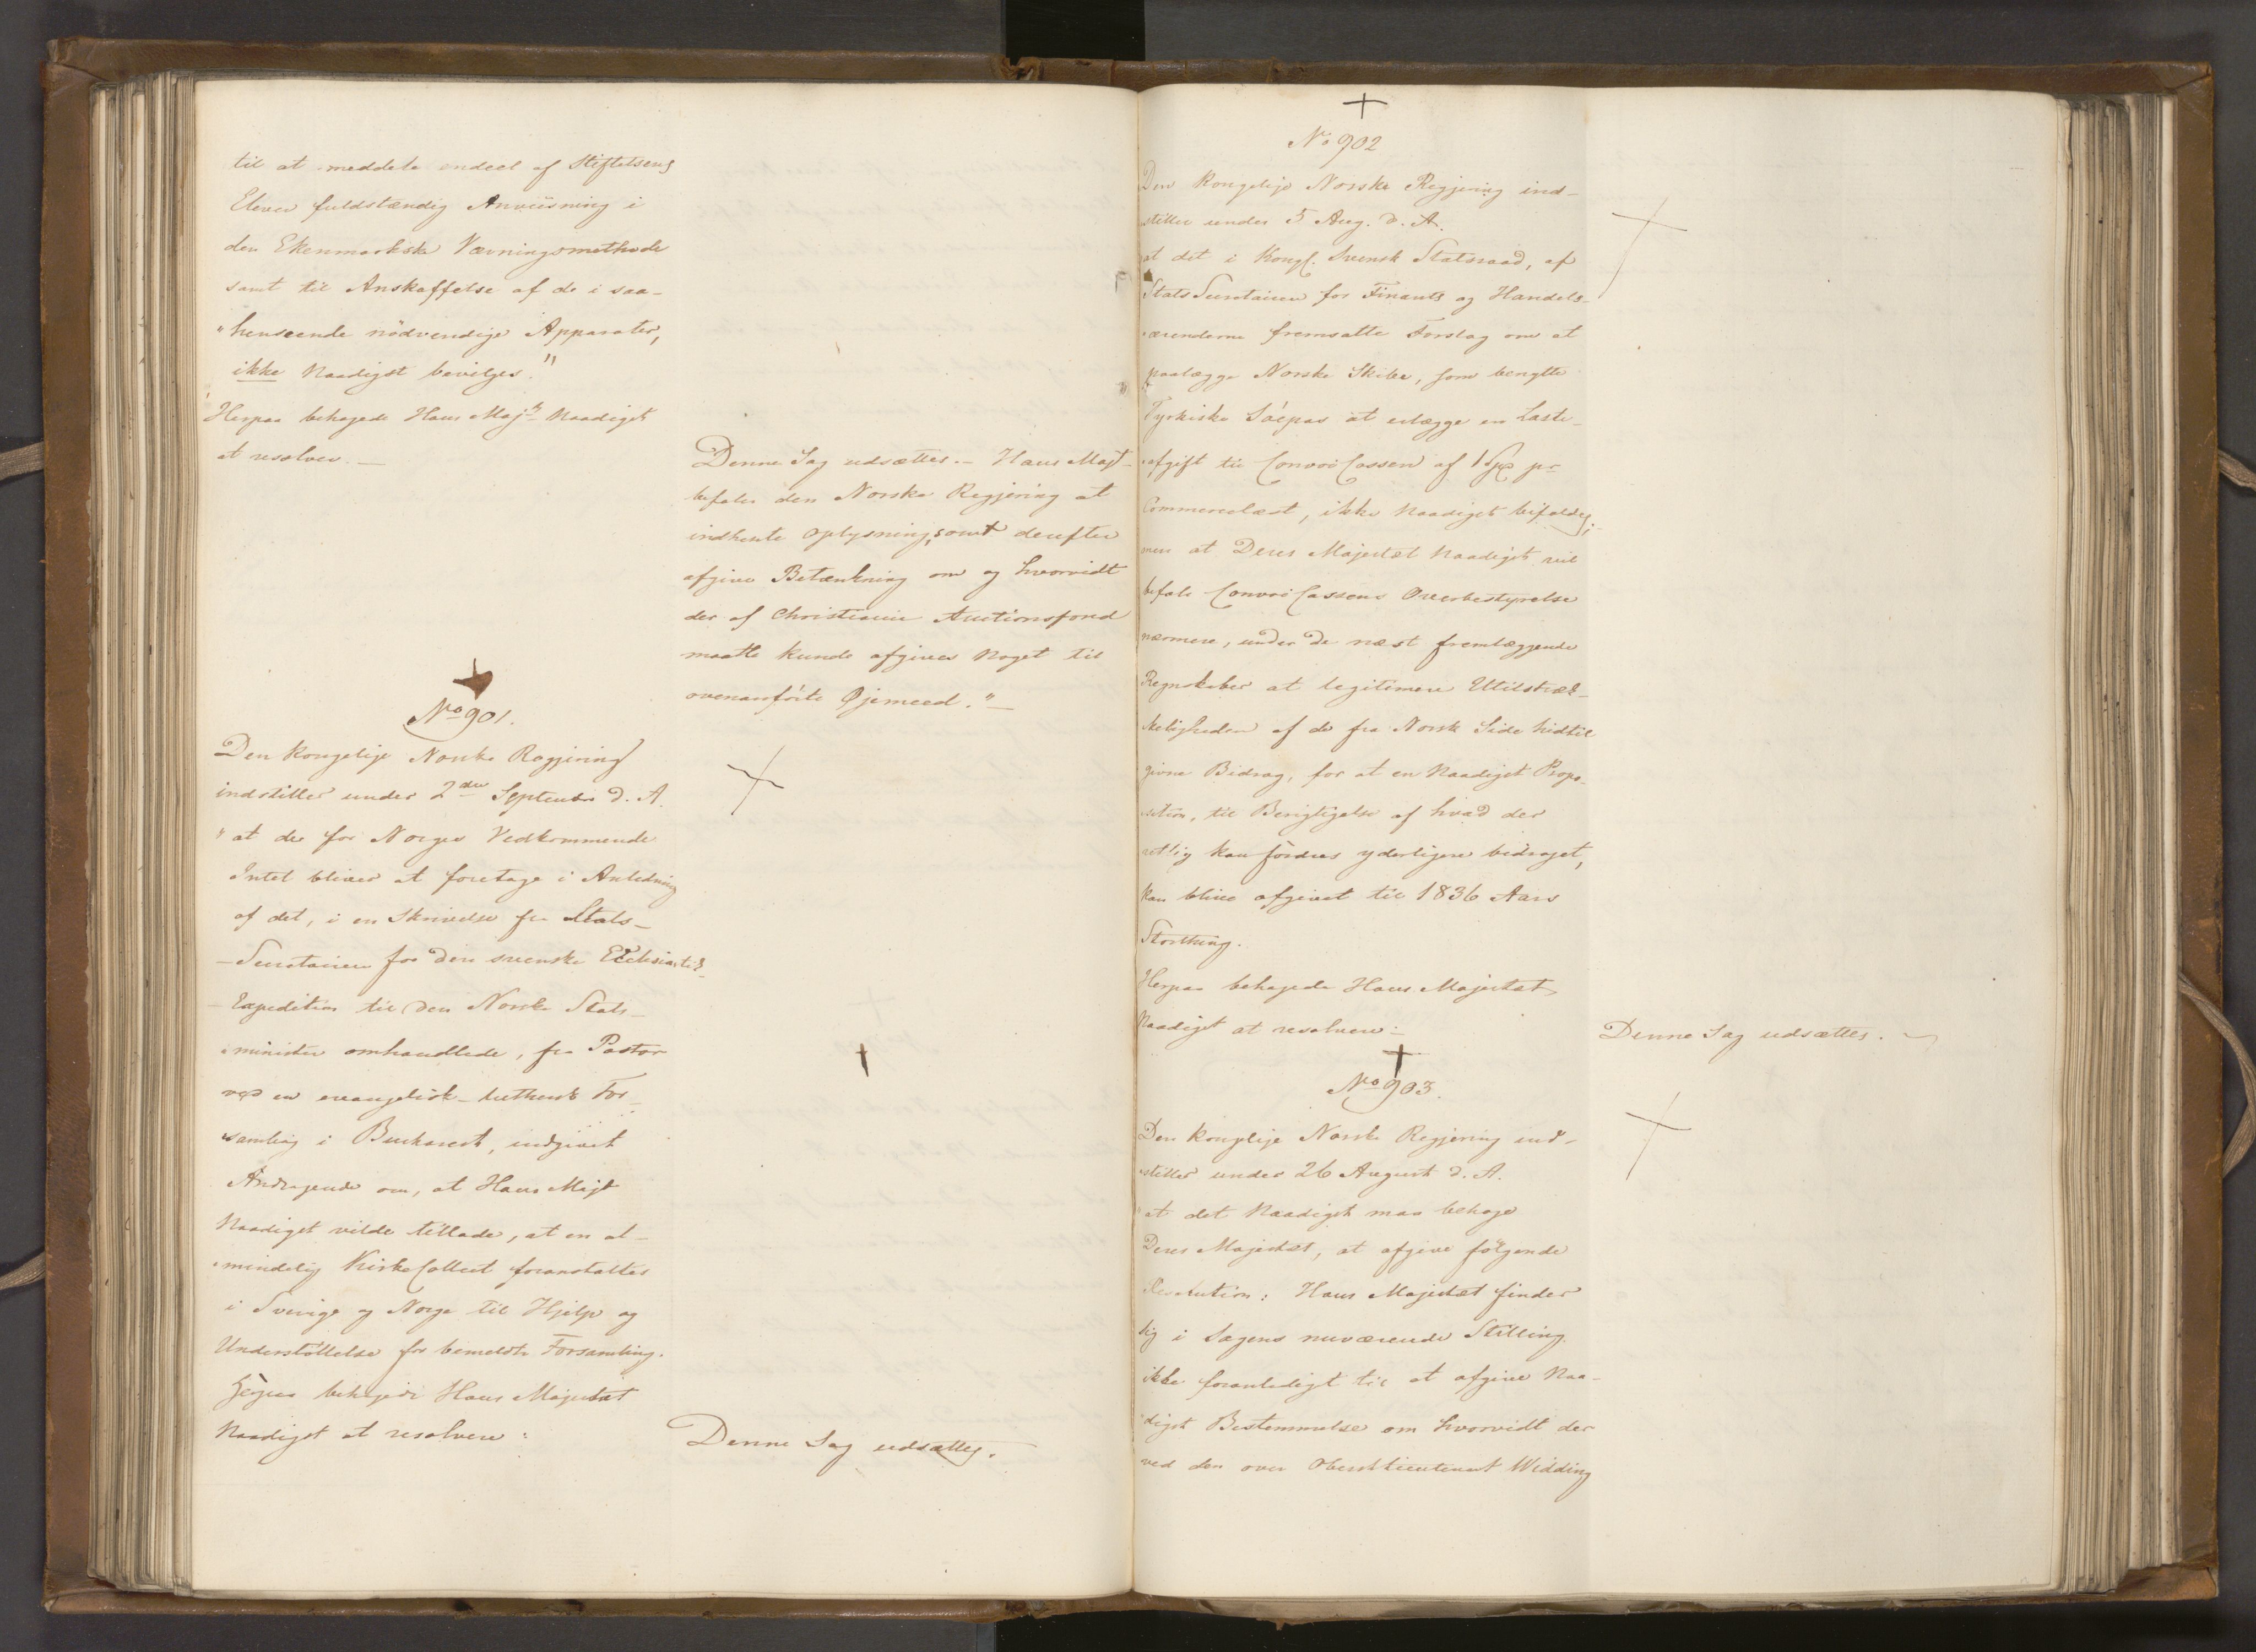 til at meddele endeel af Stiftelsens
Elever fuldstændig Anviisning i
den Ekenmarkske Vævningsmethode
samt til Anskaffelse af de i saa-
"henseende nödvendige Apparater,
ikke Naadigst bevilges."
Herpaa behagede Hans Majt Naadigst
at resolvere. —
Denne Sag udsættes. — Hans Majt
befaler den Norske Regjering at
indhente Oplysning, samt derefter
afgive Betænkning om og hvorvidt
der af Christiania Auctionsfond
maatte kunde afgives noget til
ovenanförte Øjemeed." —
No 901.
Den Kongelige Norske Regjering
indstiller under 2den September d. A.
"at der for Norges Vedkommende
Intet bliver at foretage i Anledning
af det, i en Skrivelse fra Stats-
-Secretairen for den svenske Ecclesiastik-
-Expedition til den Norske Stats-
-minister omhandlede, fra Pastor
ved en evangelisk-luthersk For-
-samling i Buckarest, indgivet
Andragende om, at Hans Majt
Naadigst vilde tillade, at en al-
-mindelig KirkeCollect foranstaltes
i Sverige og Norge til Hjelp og
Understöttelse for bemeldte Forsamling.
Herpaa behagede Hans Majestæt
Naadigst at resolvere:
Denne Sag udsættes.
No 902
Den Kongelige Norske Regjering ind-
-stiller under 5 Aug. d. A.
at det i Kongl. Svensk Statsraad, af
StatsSecretairen for Finants og Handels-
-ærenderne fremsatte Forslag om at
paalægge Norske Skibe, som benytte
Tyrkiske Söepas at erlægge en Læste-
-afgift til ConvoiCassen af 1 Spd pr
Commercelæst, ikke Naadigst bifaldes;
men at Deres Majestæt Naadigst vil
befale ConvoiCassens Overbestyrelse
nærmere, under de næst fremlæggende
Regnskaber at legitimere Utilstræk-
-keligheden af de fra Norsk Side hidtil
givne Bidrag, for at en Naadigst Propo-
-sition, til Berigtigelse af hvad der
rettelig kan fordres yderligere bidraget,
kan blive afgivet til 1836 Aars
Storthing.
Herpaa behagede Hans Majestæt
Naadigst at resolvere: —
Denne Sag udsættes. —
No 903.
Den Kongelige Norske Regjering ind-
-stiller under 26 August d. A.
"at det Naadigst maa behage
Deres Majestæt, at afgive fölgende
Resolution: Hans Majestæt finder
sig i Sagens nuværende Stilling
ikke foranlediget til at afgive Naa-
-digst Bestemmelse om hvorvidt der
ved den over Oberstlieutenant Widding